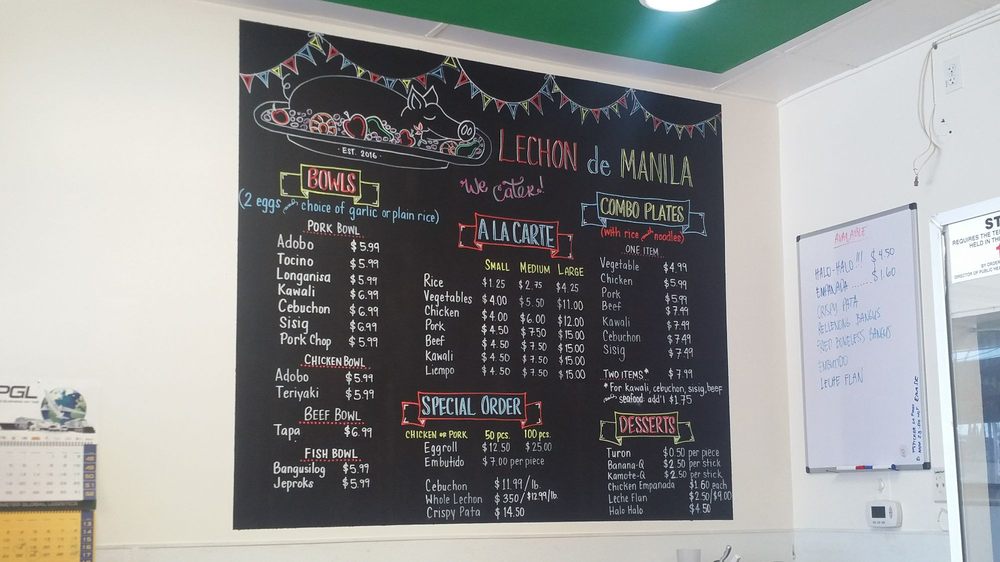 · EST. 2016 ·
LECHON de MANILA
We Cater!
BOWLS
(2 eggs and choice of garlic or plain rice)
PORK BOWL
Adobo $5.99
Tocino $5.99
Longanisa $5.99
Kawali $6.99
Cebuchon $6.99
Sisig $6.99
Pork Chop $5.99
CHICKEN BOWL
Adobo $5.99
Teriyaki $5.99
BEEF BOWL
Tapa $6.99
FISH BOWL
Bangusilog $5.99
Jeproks $5.99
A LA CARTE
SMALL MEDIUM LARGE
Rice $1.25 $2.75 $4.25
Vegetables $4.00 $5.50 $11.00
Chicken $4.00 $6.00 $12.00
Pork $4.50 $7.50 $15.00
Beef $4.50 $7.50 $15.00
Kawali $4.50 $7.50 $15.00
Liempo $4.50 $7.50 $15.00
SPECIAL ORDER
CHICKEN or PORK 50 pcs. 100 pcs.
Eggroll $12.50 $25.00
Embutido $7.00 per piece
Cebuchon $11.99/lb.
Whole Lechon $350/$12.99/lb.
Crispy Pata $14.50
COMBO PLATES
(with rice and noodles)
ONE ITEM
Vegetable $4.99
Chicken $5.99
Pork $5.99
Beef $7.49
Kawali $7.49
Cebuchon $7.49
Sisig $7.49
TWO ITEMS* $7.99
*For kawali, cebuchon, sisig, beef
and seafood add'l $1.75
DESSERTS
Turon $0.50 per piece
Banana-Q $2.50 per stick
Kamote-Q $2.50 per stick
Chicken Empanada $1.60 each
Leche Flan $2.50/$9.00
Halo Halo $4.50
AVAILABLE
HALO-HALO!!! $4.50
EMPANADA ....... $1.60
CRISPY PATA
RELLENONG BANGUS
FRIED BONELESS BANGUS
EMBUTIDO
LECHE FLAN
PGL
ST
REQUIRES THE
HELD IN TH
BY ORDER
DIRECTOR OF PUBLIC